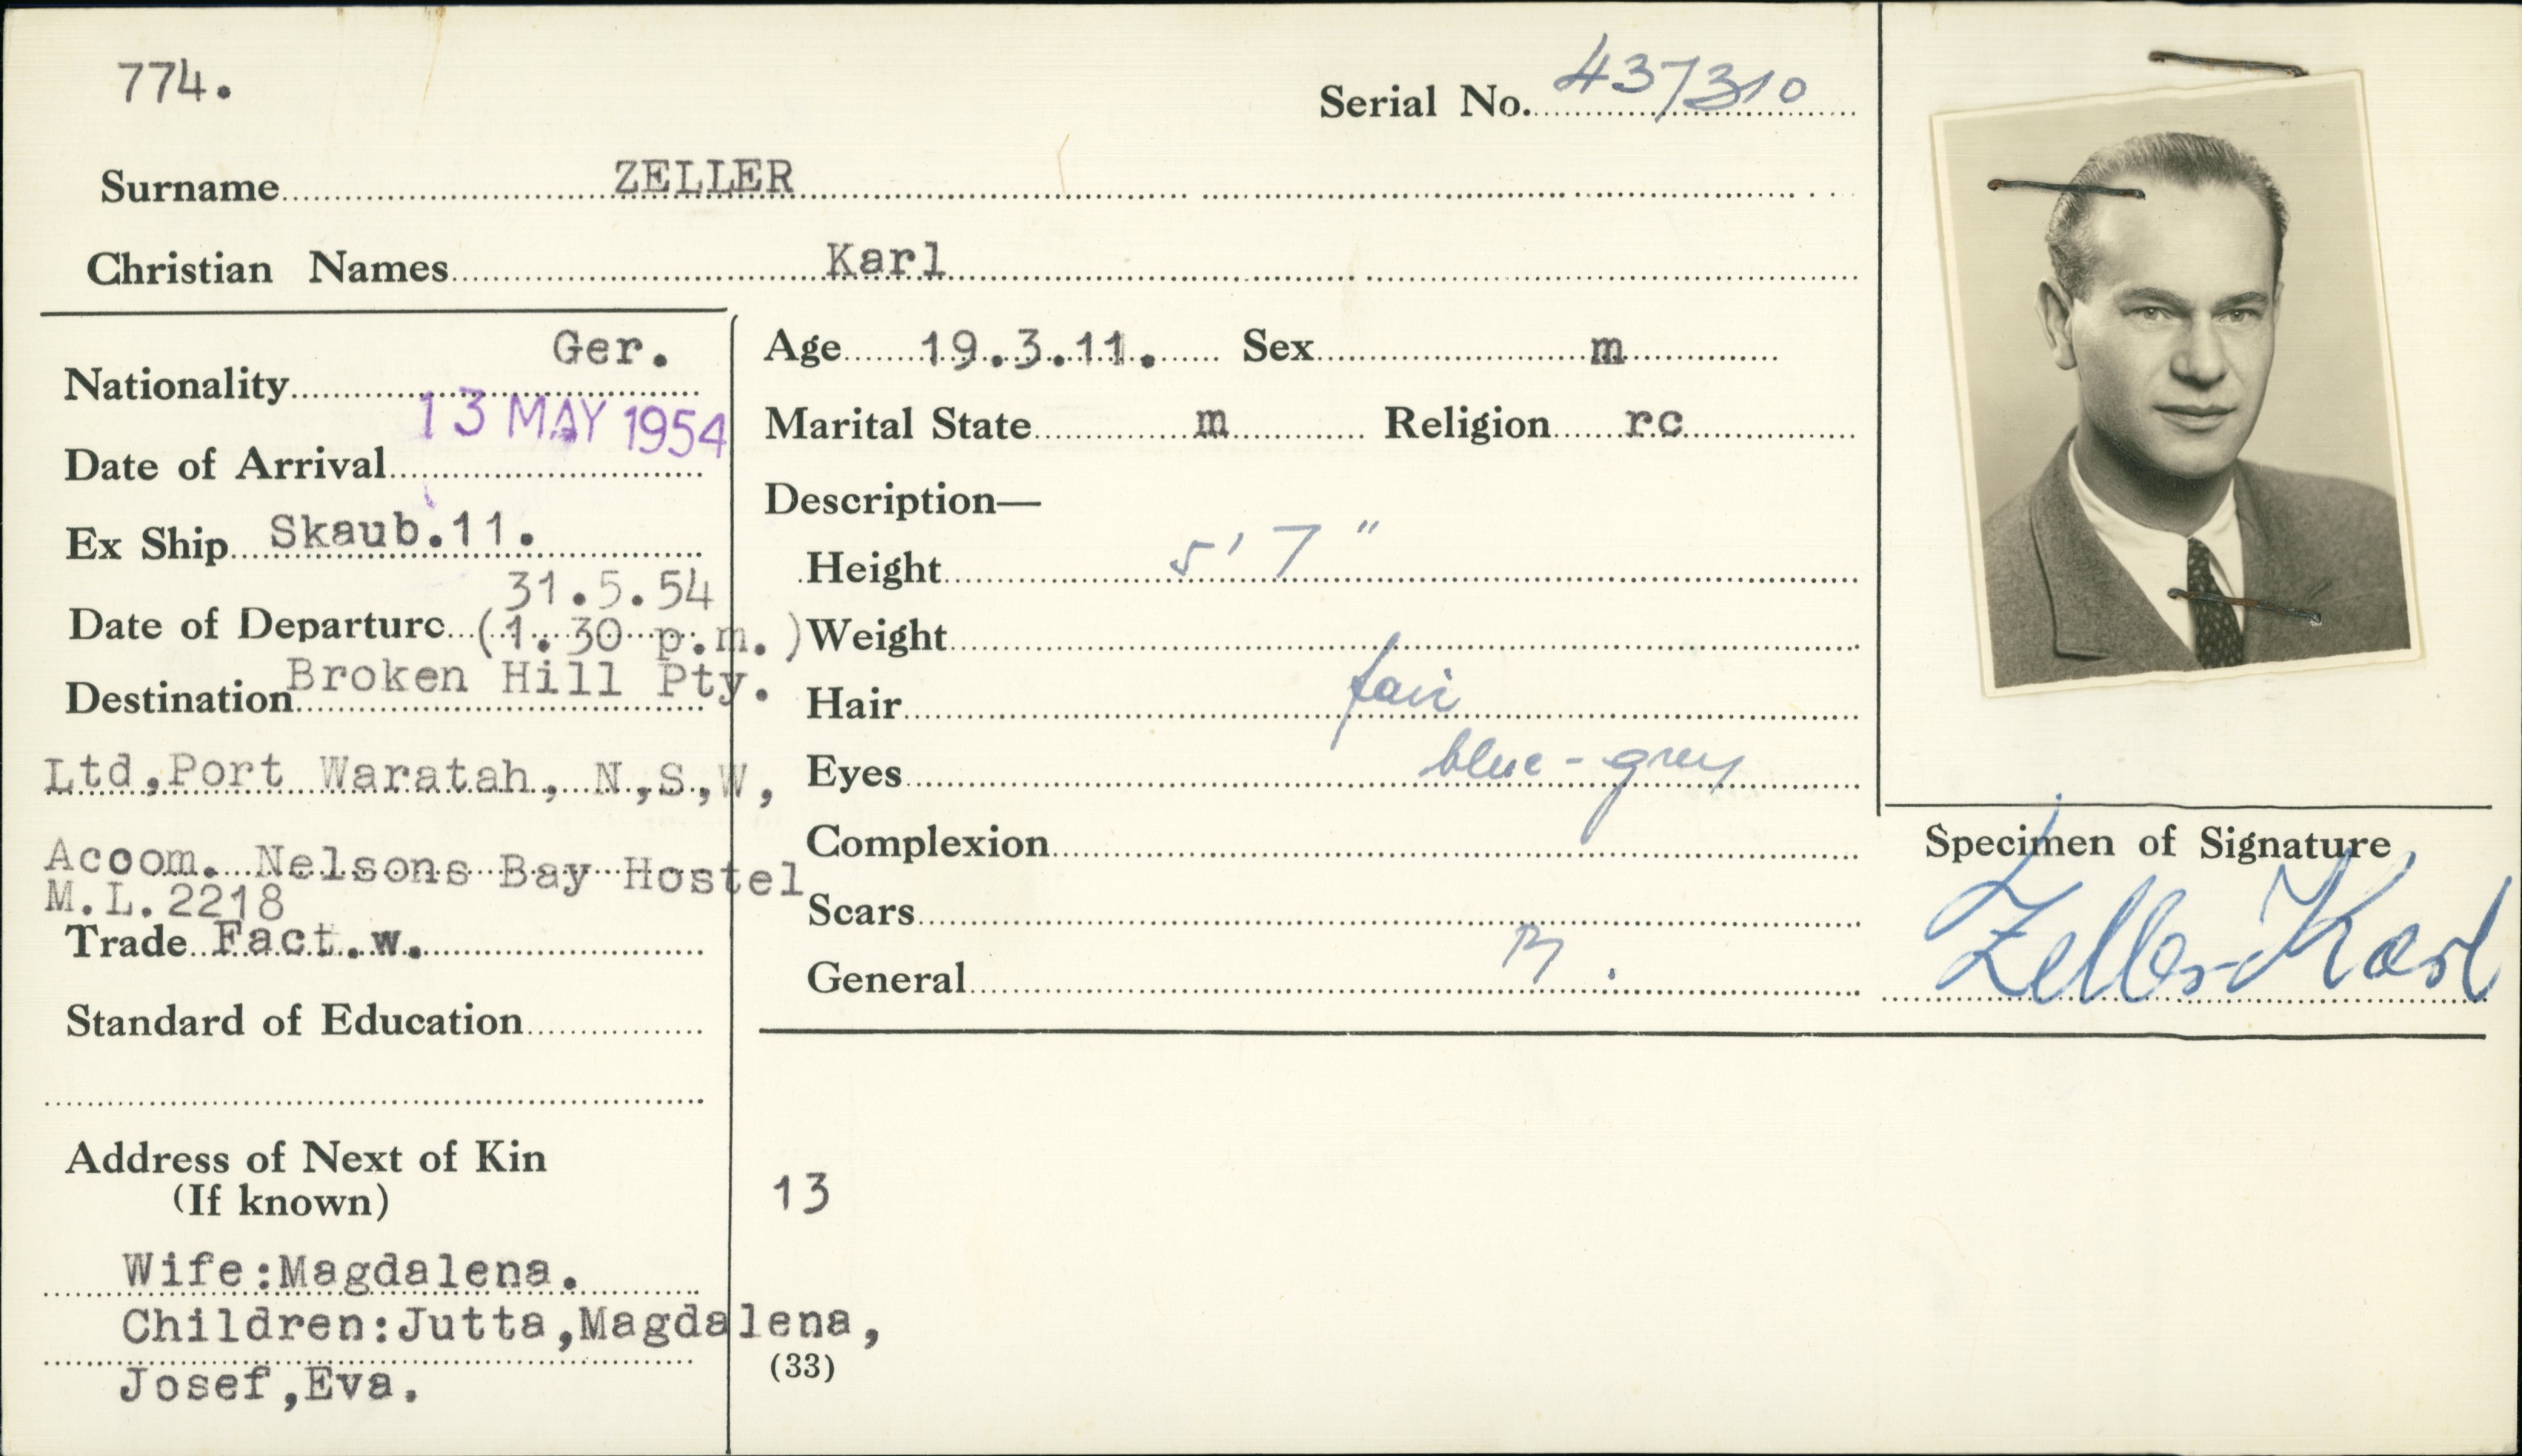 774.
Serial No. 437310
Surname ZELLER
Christian Names Karl
Nationality Ger.
Date of Arrival 13 MAY 1954
Ex Ship Skaub.11.
Date of Departure 31.5.54
(1.30 p.m.)
Destination Broken Hill Pty.
Ltd,Port Waratah, N,S,W,
Accom. Nelsons Bay Hostel
M.L.2218
Trade Fact.w.
Standard of Education
Address of Next of Kin
(If known)
Wife:Magdalena.
Children:Jutta,Magdalena,
Josef,Eva.
Age 19.3.11. Sex m
Marital State m Religion rc
Description—
Height 5' 7"
Weight
Hair fair
Eyes blue-grey
Complexion
Scars
General
13
(33)
Specimen of Signature
Zeller Karl